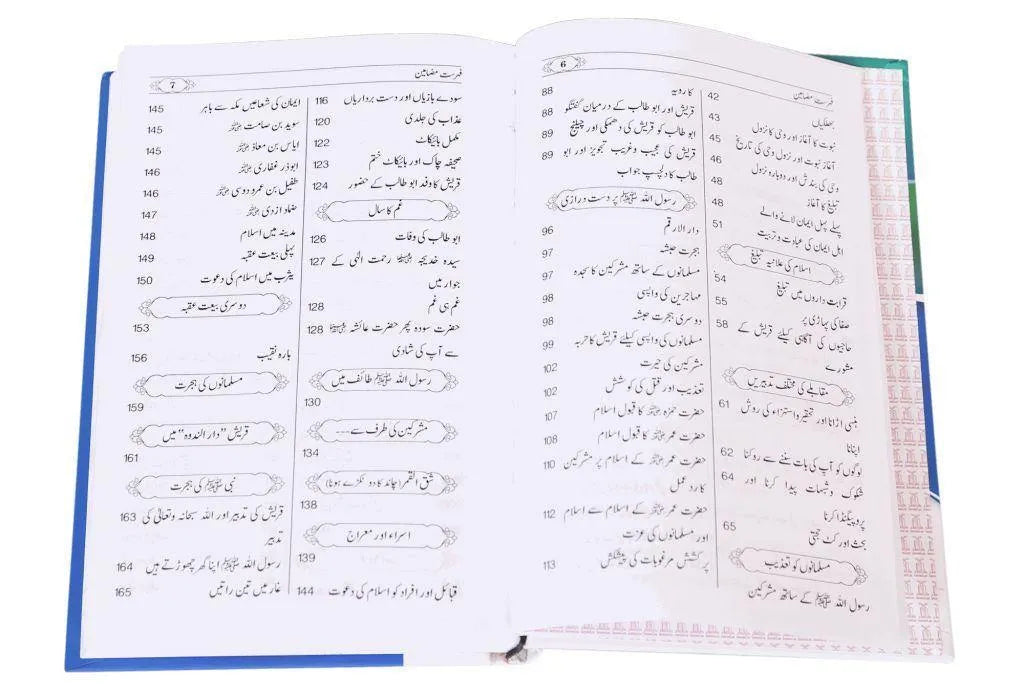 فہرست مضامین
6
جھلکیاں 42
نبوت کا آغاز اور وحی کا نزول 43
آغاز نبوت اور نزول وحی کی تاریخ 45
وحی کی بندش اور دوبارہ نزول 46
تبلیغ کا آغاز 48
پہلے پہل ایمان لانے والے 48
اہل ایمان کی عبادت و تربیت 51
اسلام کی علانیہ تبلیغ
قرابت داروں میں تبلیغ 54
صفا کی پہاڑی پر 55
حاجیوں کی آگاہی کیلئے قریش کے 58
مشورے
مقابلے کی مختلف تدبیریں
ہنسی اڑانا اور تحقیر و استہزاء کی روش 61
اپنانا
لوگوں کو آپ کی بات سننے سے روکنا 62
شکوک و شبہات پیدا کرنا اور 64
پروپیگنڈا کرنا
بحث اور کٹ حجتی 65
مسلمانوں کو تعذیب
رسول اللہ ﷺ کے ساتھ مشرکین
کا رویہ 88
قریش اور ابو طالب کے درمیان گفتگو 88
ابو طالب کو قریش کی دھمکی اور چیلنج 89
قریش کی عجیب و غریب تجویز اور ابو 89
طالب کا دلچسپ جواب
رسول اللہ ﷺ پر دست درازی
دار الارقم 96
ہجرت حبشہ 97
مسلمانوں کے ساتھ مشرکین کا سجدہ 97
مہاجرین کی واپسی 98
دوسری ہجرت حبشہ 98
مسلمانوں کی واپسی کیلئے قریش کا حربہ 99
مشرکین کی حیرت 102
تعذیب اور قتل کی کوشش 102
حضرت حمزہ رضی اللہ عنہ کا قبول اسلام 107
حضرت عمر رضی اللہ عنہ کا قبول اسلام 108
حضرت عمر رضی اللہ عنہ کے اسلام پر مشرکین 110
کا رد عمل
حضرت عمر رضی اللہ عنہ کے اسلام سے اسلام 112
اور مسلمانوں کی عزت
پر کشش مرغوبات کی پیشکش 113
فہرست مضامین
7
سودے بازیاں اور دست برداریاں 116
عذاب کی جلدی 120
مکمل بائیکاٹ 122
صحیفہ چاک اور بائیکاٹ ختم 123
قریش کا وفد ابو طالب کے حضور 124
غم کا سال
ابو طالب کی وفات 126
سیدہ خدیجہ رضی اللہ عنہا رحمت الٰہی کے 127
جوار میں
غم ہی غم 128
حضرت سودہ پھر حضرت عائشہ رضی اللہ عنہا 128
سے آپ کی شادی
رسول اللہ ﷺ طائف میں
130
مشرکین کی طرف سے ---
134
شق القمر (چاند کا دو ٹکڑے ہونا)
138
اسراء اور معراج
139
قبائل اور افراد کو اسلام کی دعوت 144
ایمان کی شعاعیں مکہ سے باہر 145
سوید بن صامت رضی اللہ عنہ 145
ایاس بن معاذ رضی اللہ عنہ 145
ابو ذر غفاری رضی اللہ عنہ 146
طفیل بن عمرو دوسی رضی اللہ عنہ 146
ضماد ازدی رضی اللہ عنہ 147
مدینہ میں اسلام 148
پہلی بیعت عقبہ 149
یثرب میں اسلام کی دعوت 150
دوسری بیعت عقبہ
153
بارہ نقیب 156
مسلمانوں کی ہجرت
159
قریش ”دار الندوہ“ میں
161
نبی ﷺ کی ہجرت
قریش کی تدبیر اور اللہ سبحانہ وتعالیٰ کی 163
تدبیر
رسول اللہ ﷺ اپنا گھر چھوڑتے ہیں 164
غار میں تین راتیں 165